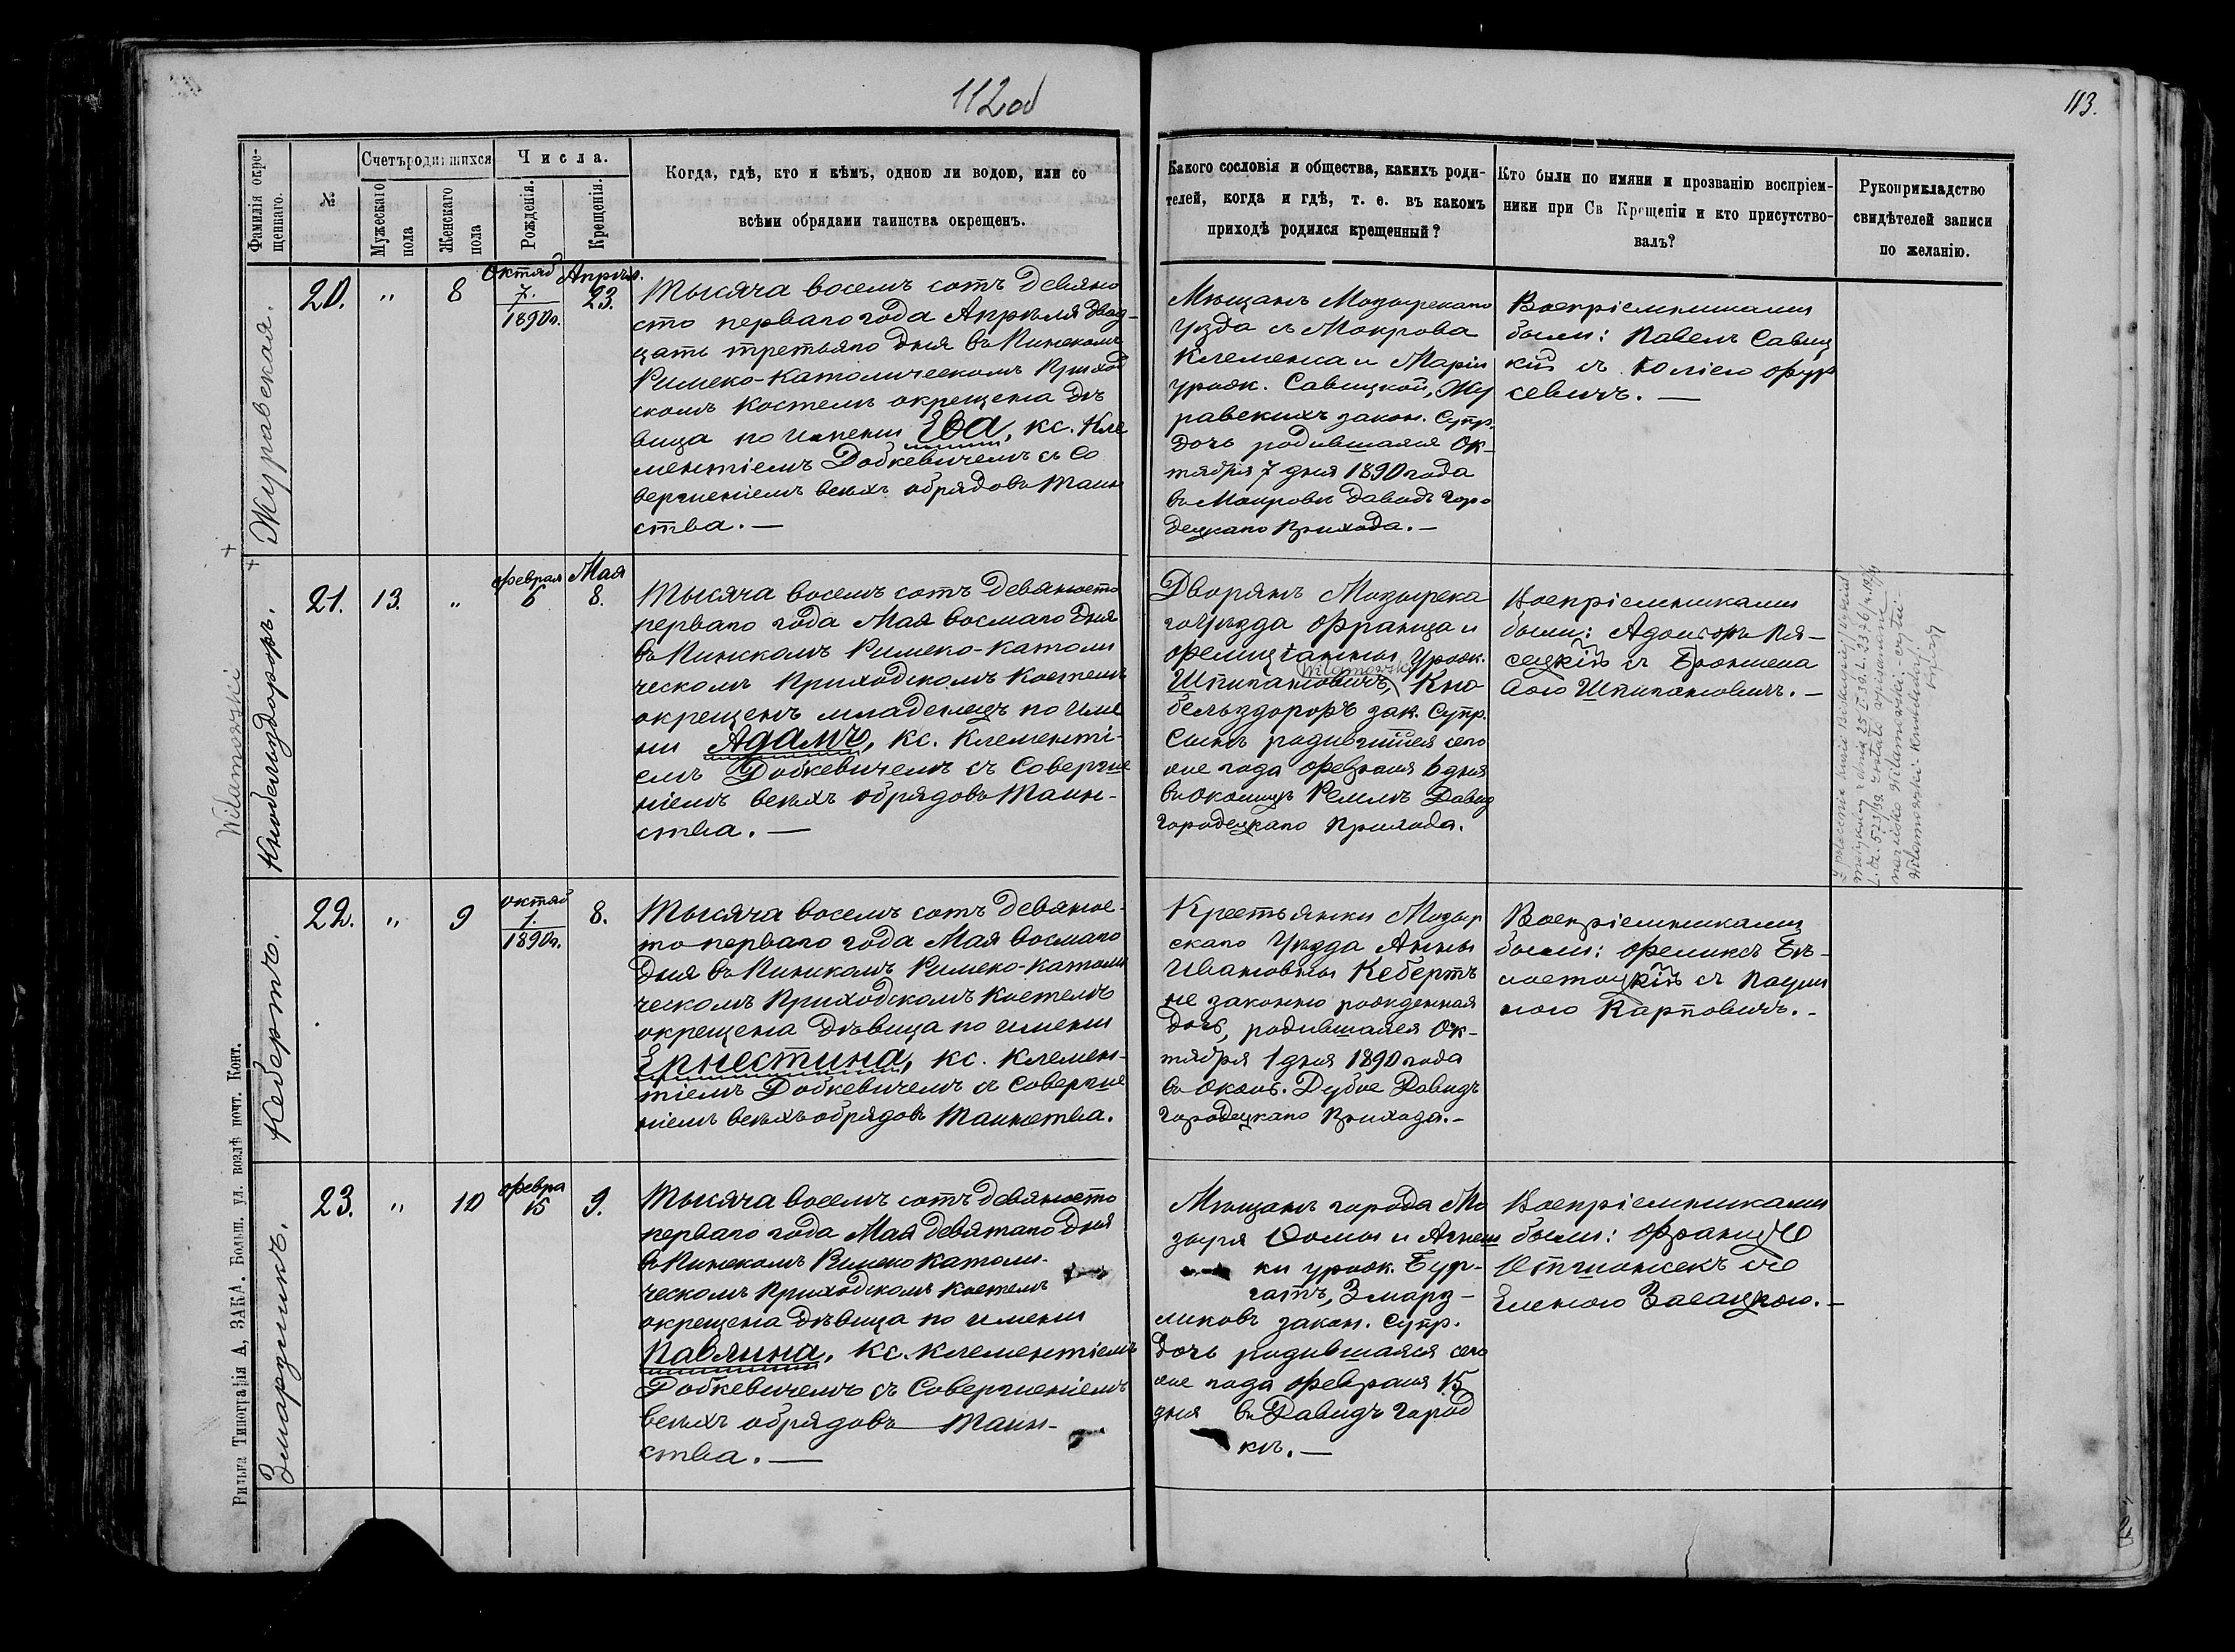 112об
113.
Фамилія окре-
щеннаго.
№
Счетъ родившихся
Мужескаго
пола
Женскаго
пола
Числа.
Рожденія.
Крещенія.
Когда, гдѣ, кто и кѣмъ, одною ли водою, или со
всѣми обрядами таинства окрещенъ.
Какого сословія и общества, какихъ роди-
телей, когда и гдѣ, т. е. въ какомъ
приходѣ родился крещенный?
Кто были по имяни и прозванію воспріем-
ники при Св Крещеніи и кто присутство-
валъ?
Рукоприкладство
свидѣтелей записи
по желанію.
Журавская.
20.
"
8
Октяб
7.
1890г.
Апрѣл.
23.
Тысяча восемъ сотъ девяно
сто перваго года Апрѣля двад-
цать третьяго дня въ Пинскомъ
Римско-Католическомъ Приход
скомъ Костелѣ окрещена дѣ
вица по имени Ева, кс. Кле
ментіемъ Добкевичемъ съ Со
вершеніемъ всѣхъ обрядовъ Таин
ства.—
Мѣщанъ Мозырскаго
Уѣзда съ Мокрова
Клеменса и Маріи
урожд. Савицкой, Жу
равскихъ закон. Супр.
дочь родившаяся Ок-
тября 7 дня 1890 года
въ Мокровѣ Давидъ Горо
децкаго Прихода.—
Воспріемниками
были: Павелъ Савиц
кій съ Юліею Фур
севичъ.—
Wilamowski
Кнобельздорфъ.
21.
13.
"
Феврал
6
Мая
8.
Тысяча восемъ сотъ девяносто
перваго года Мая восмаго дня
въ Пинскомъ Римско-Католи
ческомъ Приходскомъ Костелѣ
окрещенъ младенецъ по име
ни Адамъ, кс. Клементі-
емъ Добкевичемъ съ Соверше
ніемъ всѣхъ обрядовъ Таин-
ства.—
Дворянъ Мозырска
го Уѣзда Франца и
Фелиціанны Урожд.
Wilamowski
Шпипановичъ, Кно
бельздорфъ зак. Супр.
Сынъ родившійся сего
же года Февраля 6 дня
въ Околицѣ Ремлѣ Давид
Городецкаго Прихода.
Воспріемниками
были: Адольфъ Пя-
сецкій съ Бронисла
вою Шпипановичъ.—
Z polecenia Kurii Biskupiej
nazwisko Wilamowski. - czytaj:
Кебертъ.
22.
"
9
октяб
1.
1890г.
8.
Тысяча восемъ сотъ девянос-
то перваго года Мая восмаго
дня въ Пинскомъ Римско-Католи
ческомъ Приходскомъ Костелѣ
окрещена дѣвица по имени
Ернестина, кс. Клемен-
тіемъ Добкевичемъ съ Соверше
ніемъ всѣхъ обрядовъ Таинства.
Крестьянки Мозыр
скаго Уѣзда Анны
Ивановны Кебертъ
не законно рожденная
дочь, родившаяся Ок-
тября 1 дня 1890 года
въ Окол. Дубое Давидъ
Городецкаго Прихода.—
Воспріемниками
были: Феликсъ Бѣ-
лостоцкій съ Паули
ною Карповичъ.-
Змарзликъ.
23.
"
10
Февра
15
9.
Тысяча восемъ сотъ девяносто
перваго года Мая девятаго дня
въ Пинскомъ Римско Католи-
ческомъ Приходскомъ Костелѣ
окрещена дѣвица по имени
Павлина, кс. Клементіемъ
Добкевичемъ съ Совершеніемъ
всѣхъ обрядовъ Таин-
ства.—
Мѣщанъ города Мо
зыря Ѳомы и Агнеш
ки урожд. Бур-
гатъ, Змарз-
ликовъ закон. Супр.
дочь родившаяся сего
же года Февраля 15
дня въ Давидъ Город
кѣ.—
Воспріемниками
были: Францъ
съ
Еленою Засацкою.—
Вильна Типографія А, ЗАКА. Больш. ул. возлѣ почт. Конт.